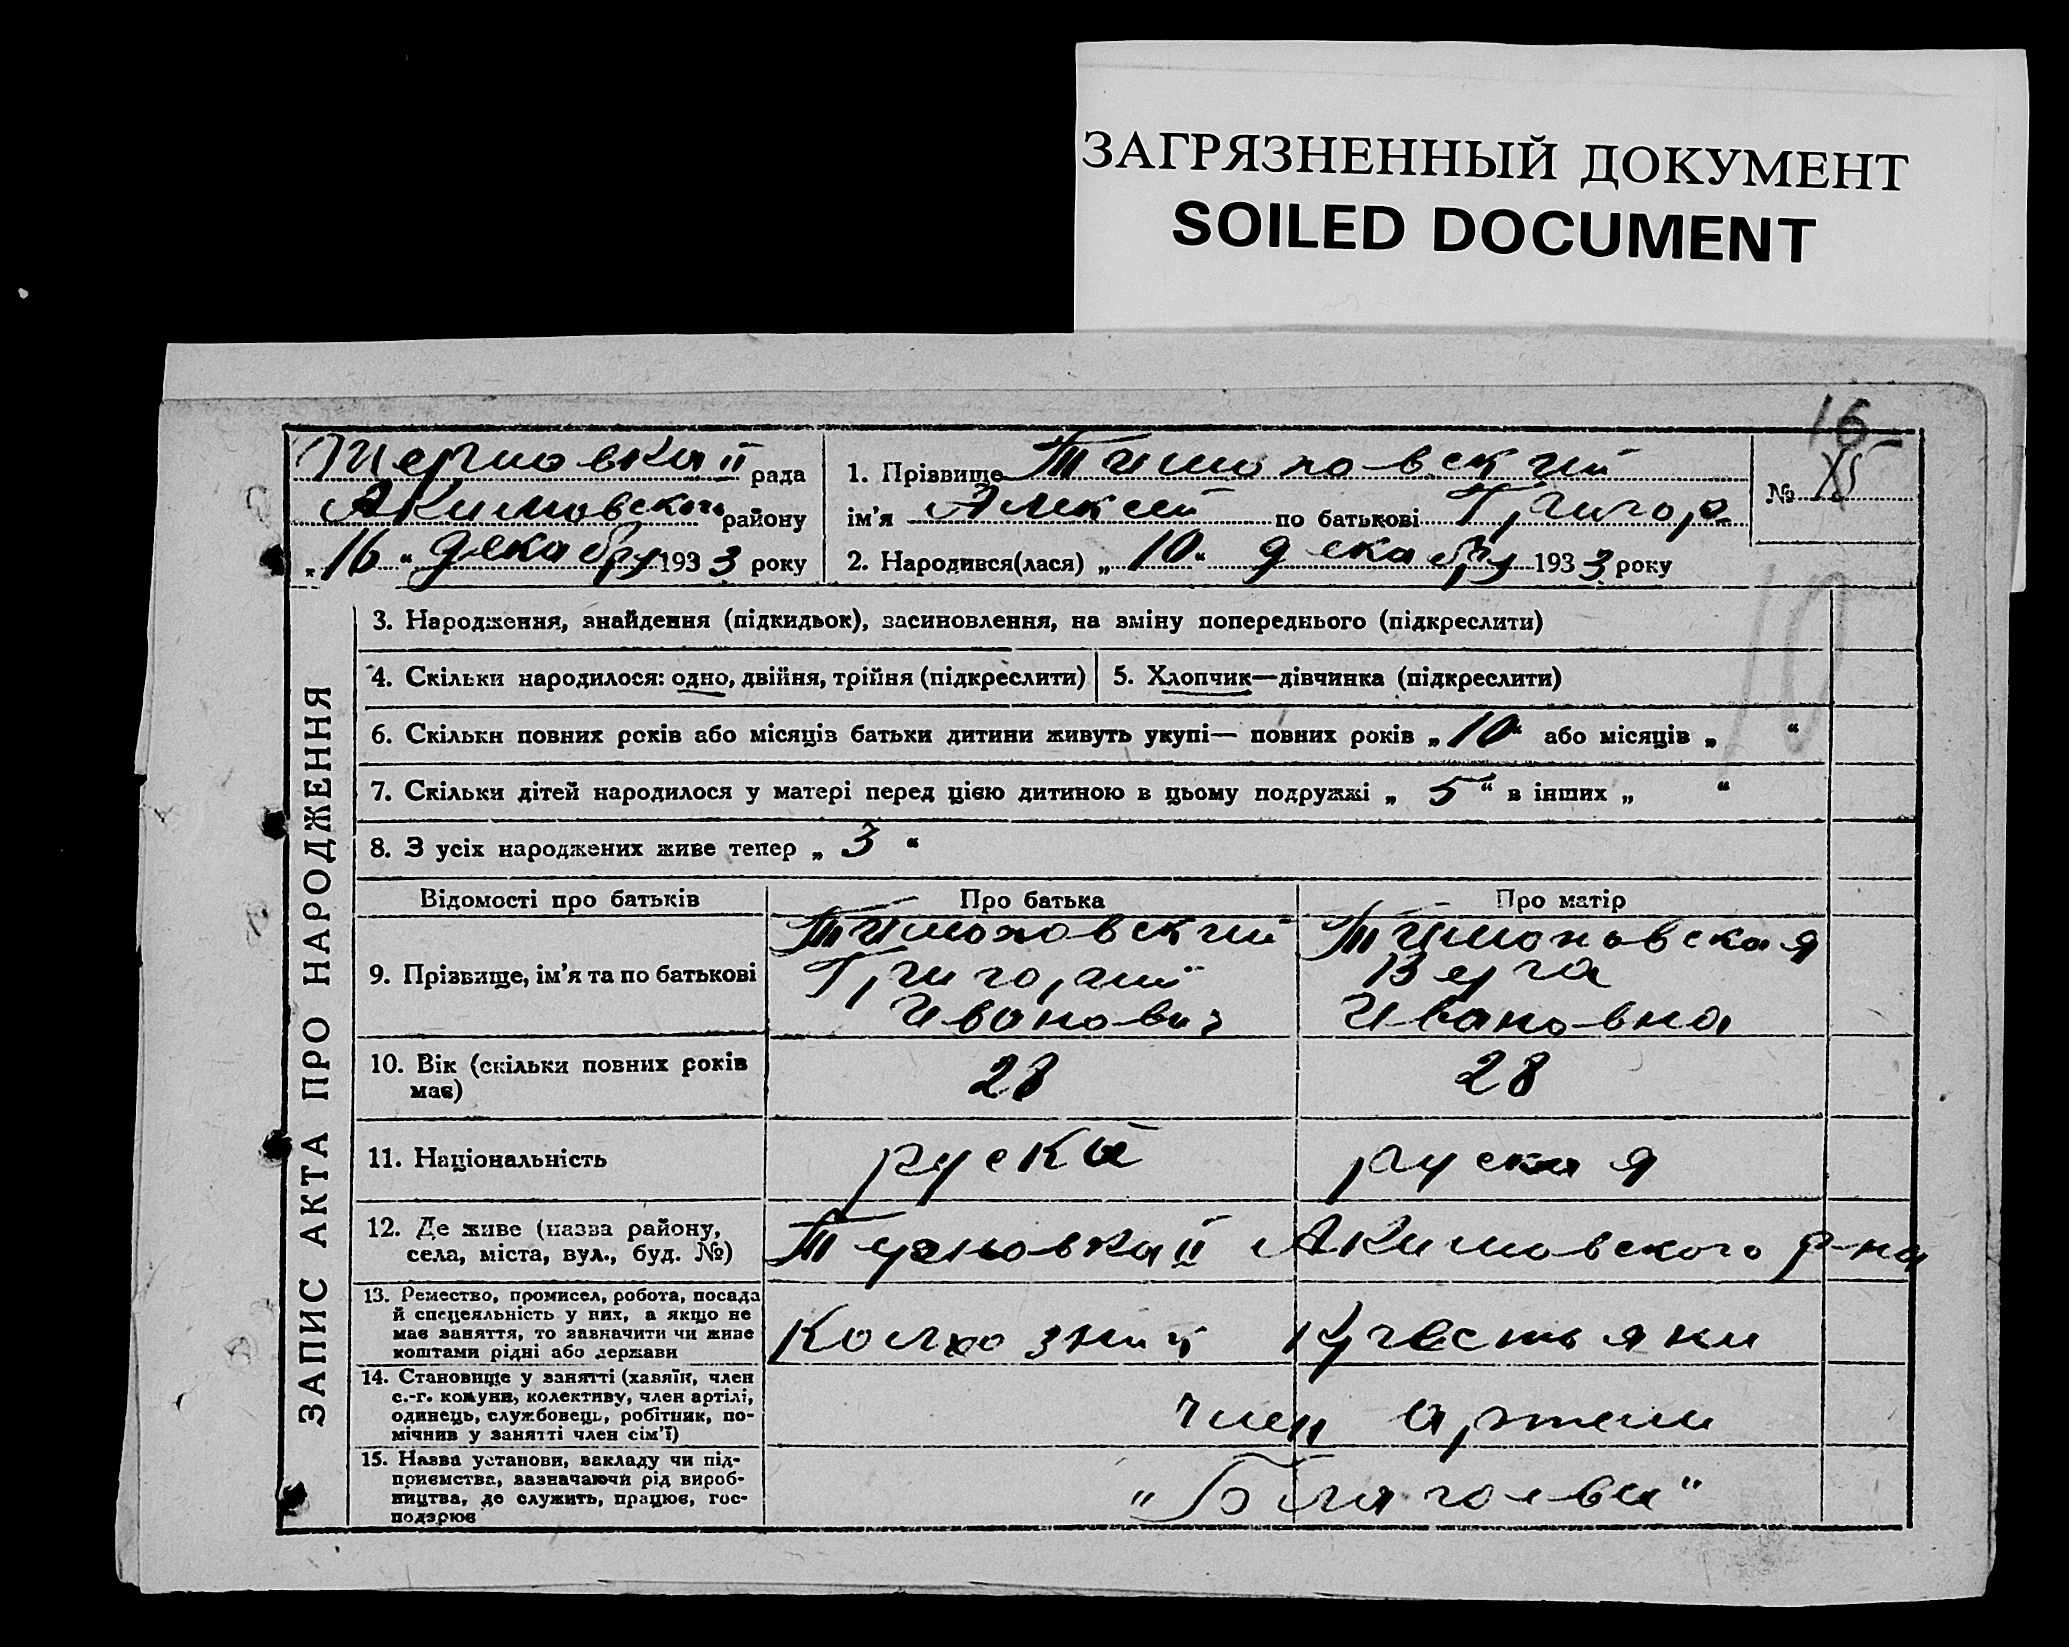 ЗАГРЯЗНЕННЫЙ ДОКУМЕНТ
SOILED DOCUMENT
16
Терновка II рада
Акимовского району
„16" декабря 1933 року
1. Прізвище Тимоновский
ім'я Алексей по батькові Григор
2. Народився(лася) „10" декабря 1933 року
№ 15
10
ЗАПИС АКТА ПРО НАРОДЖЕННЯ
3. Народження, знайдення (підкидьок), засиновлення, на зміну попереднього (підкреслити)
4. Скільки народилося: одно, двійня, трійня (підкреслити)
5. Хлопчик—дівчинка (підкреслити)
6. Скільки повних років або місяців батьки дитини живуть укупі— повних років „10" або місяців „ "
7. Скільки дітей народилося у матері перед цією дитиною в цьому подружжі „ 5 " в інших „ "
8. З усіх народжених живе тепер „ 3 "
Відомості про батьків Про батька Про матір
9. Прізвище, ім'я та по батькові
Тимоновский
Григорий
Иванович
Тимоновская
Вера
Ивановна
10. Вік (скільки повних років
має)
28 28
11. Національність руский руская
12. Де живе (назва району,
села, міста, вул., буд. №)
Терновка II Акимовского р-на
13. Ремество, промисел, робота, посада
й спецеяльність у них, а якщо не
має заняття, то зазначити чи живе
коштами рідні або держави
Колхозни крестьяни
14. Становище у занятті (хазяїн, член
с.-г. комуни, колективу, член артілі,
одинець, службовець, робітник, по-
мічник у занятті член сім'ї)
член артели
15. Назва установи, закладу чи під-
приємства, зазначаючи рід вироб-
ництва, де служить, працює, гос-
подарює
„Благоева"